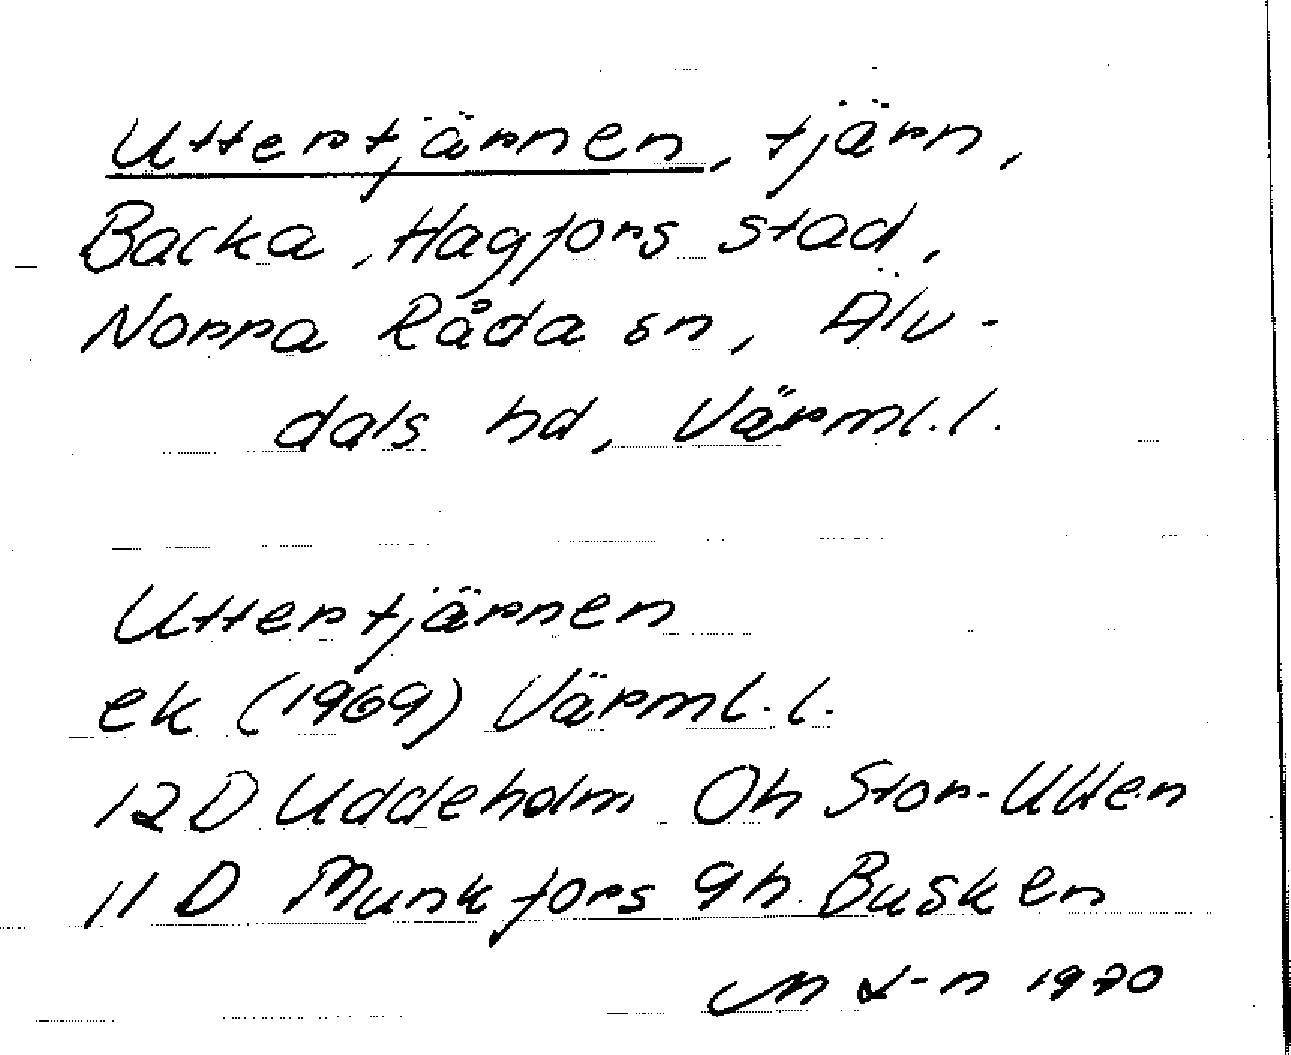 Uttertjärnen, tjärn,
Backa, Hagfors stad,
Norra Råda sn, Älv-
dals hd, Värml. l.
Uttertjärnen
ek (1969) Värml. l.
12 D Uddeholm 0h Stor-Ullen
11 D Munkfors 9h Busken
1970